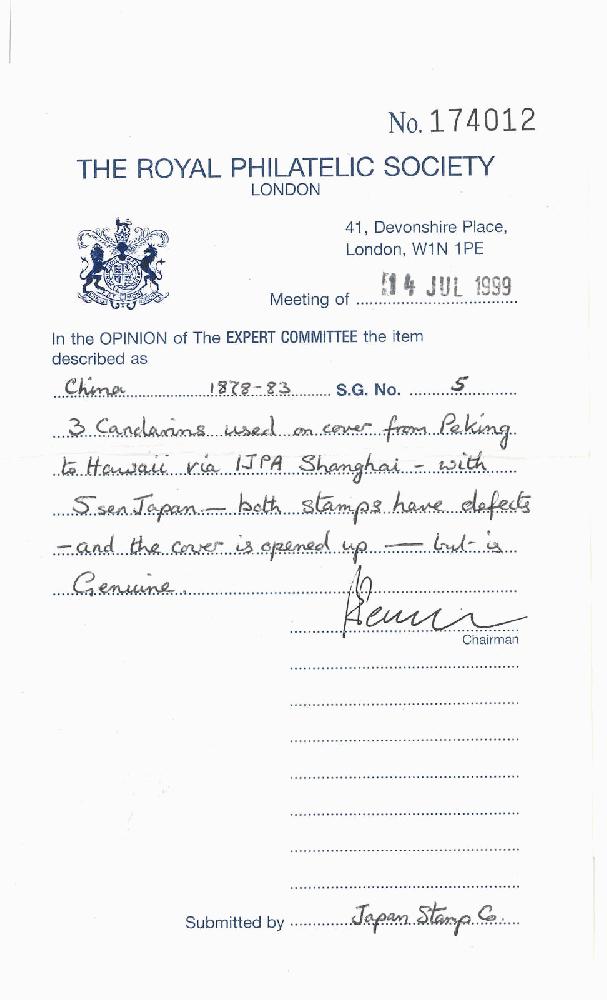 No. 174012
THE ROYAL PHILATELIC SOCIETY
LONDON
41, Devonshire Place,
London, W1N 1PE
Meeting of 14 JUL 1999
In the OPINION of The EXPERT COMMITTEE the item
described as
China 1878-83 S.G. No. 5
3 Candarins used on cover from Peking
to Hawaii via IJPA Shanghai - with
5 sen Japan - both stamps have defects
- and the cover is opened up - but is
Genuine.
Chairman
Submitted by Japan Stamp Co.